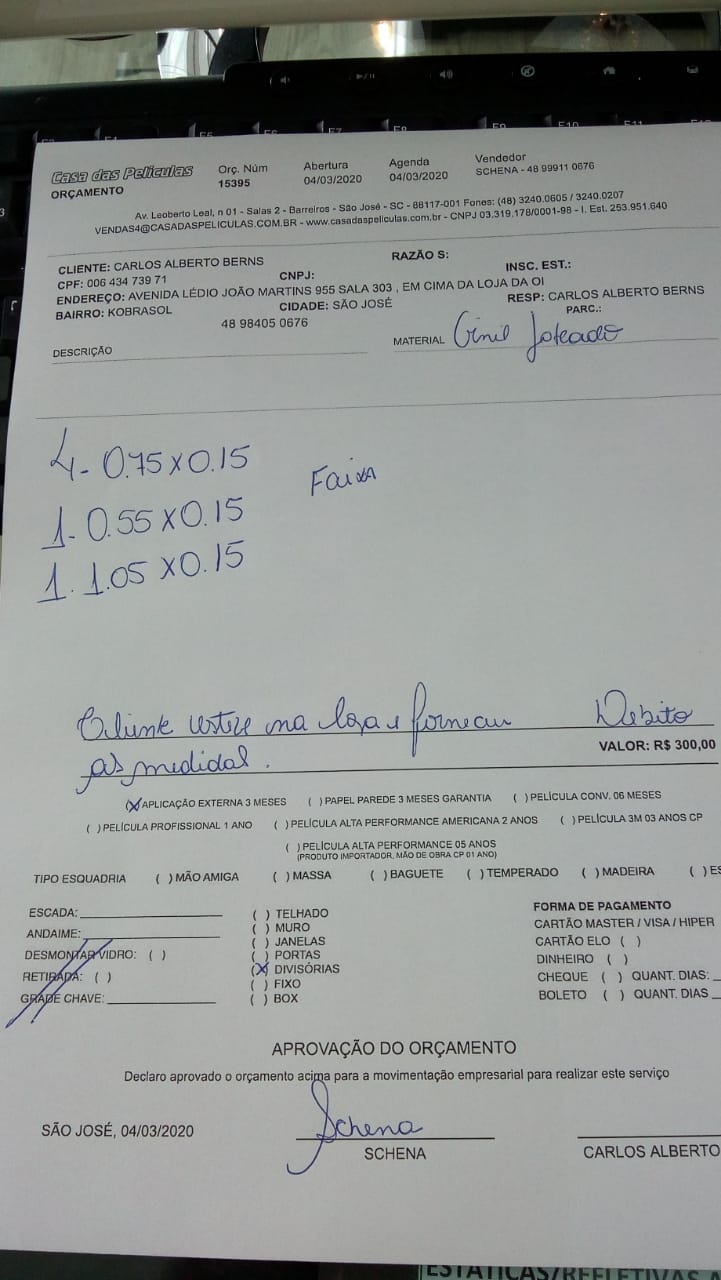 Casa das Películas
ORÇAMENTO
Orç. Núm
15395
Abertura
04/03/2020
Agenda
04/03/2020
Vendedor
SCHENA - 48 99911 0676
Av. Leoberto Leal, n 01 - Salas 2 - Barreiros - São José - SC - 88117-001 Fones: (48) 3240.0605 / 3240.0207
VENDAS4@CASADASPELICULAS.COM.BR - www.casadaspeliculas.com.br - CNPJ 03.319.178/0001-98 - I. Est. 253.951.640
CLIENTE: CARLOS ALBERTO BERNS RAZÃO S:
CPF: 006 434 739 71 CNPJ: INSC. EST.:
ENDEREÇO: AVENIDA LÉDIO JOÃO MARTINS 955 SALA 303 , EM CIMA DA LOJA DA OI
BAIRRO: KOBRASOL CIDADE: SÃO JOSÉ RESP: CARLOS ALBERTO BERNS
48 98405 0676 PARC.:
DESCRIÇÃO MATERIAL Vinil Joteado
4- 0.75 x 0.15 Faixa
1- 0.55 x 0.15
1. 1.05 x 0.15
Cliente na loja e forneceu Debito
as medidas. VALOR: R$ 300,00
(X) APLICAÇÃO EXTERNA 3 MESES ( ) PAPEL PAREDE 3 MESES GARANTIA ( ) PELÍCULA CONV. 06 MESES
( ) PELÍCULA PROFISSIONAL 1 ANO ( ) PELÍCULA ALTA PERFORMANCE AMERICANA 2 ANOS ( ) PELÍCULA 3M 03 ANOS CP
( ) PELÍCULA ALTA PERFORMANCE 05 ANOS
(PRODUTO IMPORTADOR, MÃO DE OBRA CP 01 ANO)
TIPO ESQUADRIA ( ) MÃO AMIGA ( ) MASSA ( ) BAGUETE ( ) TEMPERADO ( ) MADEIRA ( ) ES
ESCADA:
ANDAIME:
DESMONTAR VIDRO: ( )
RETIRADA: ( )
GRADE CHAVE:
( ) TELHADO
( ) MURO
( ) JANELAS
( ) PORTAS
(X) DIVISÓRIAS
( ) FIXO
( ) BOX
FORMA DE PAGAMENTO
CARTÃO MASTER / VISA / HIPER
CARTÃO ELO ( )
DINHEIRO ( )
CHEQUE ( ) QUANT. DIAS:
BOLETO ( ) QUANT. DIAS
APROVAÇÃO DO ORÇAMENTO
Declaro aprovado o orçamento acima para a movimentação empresarial para realizar este serviço
SÃO JOSÉ, 04/03/2020
Schena
SCHENA
CARLOS ALBERTO
ESTÁTICAS/REFLETIVAS A